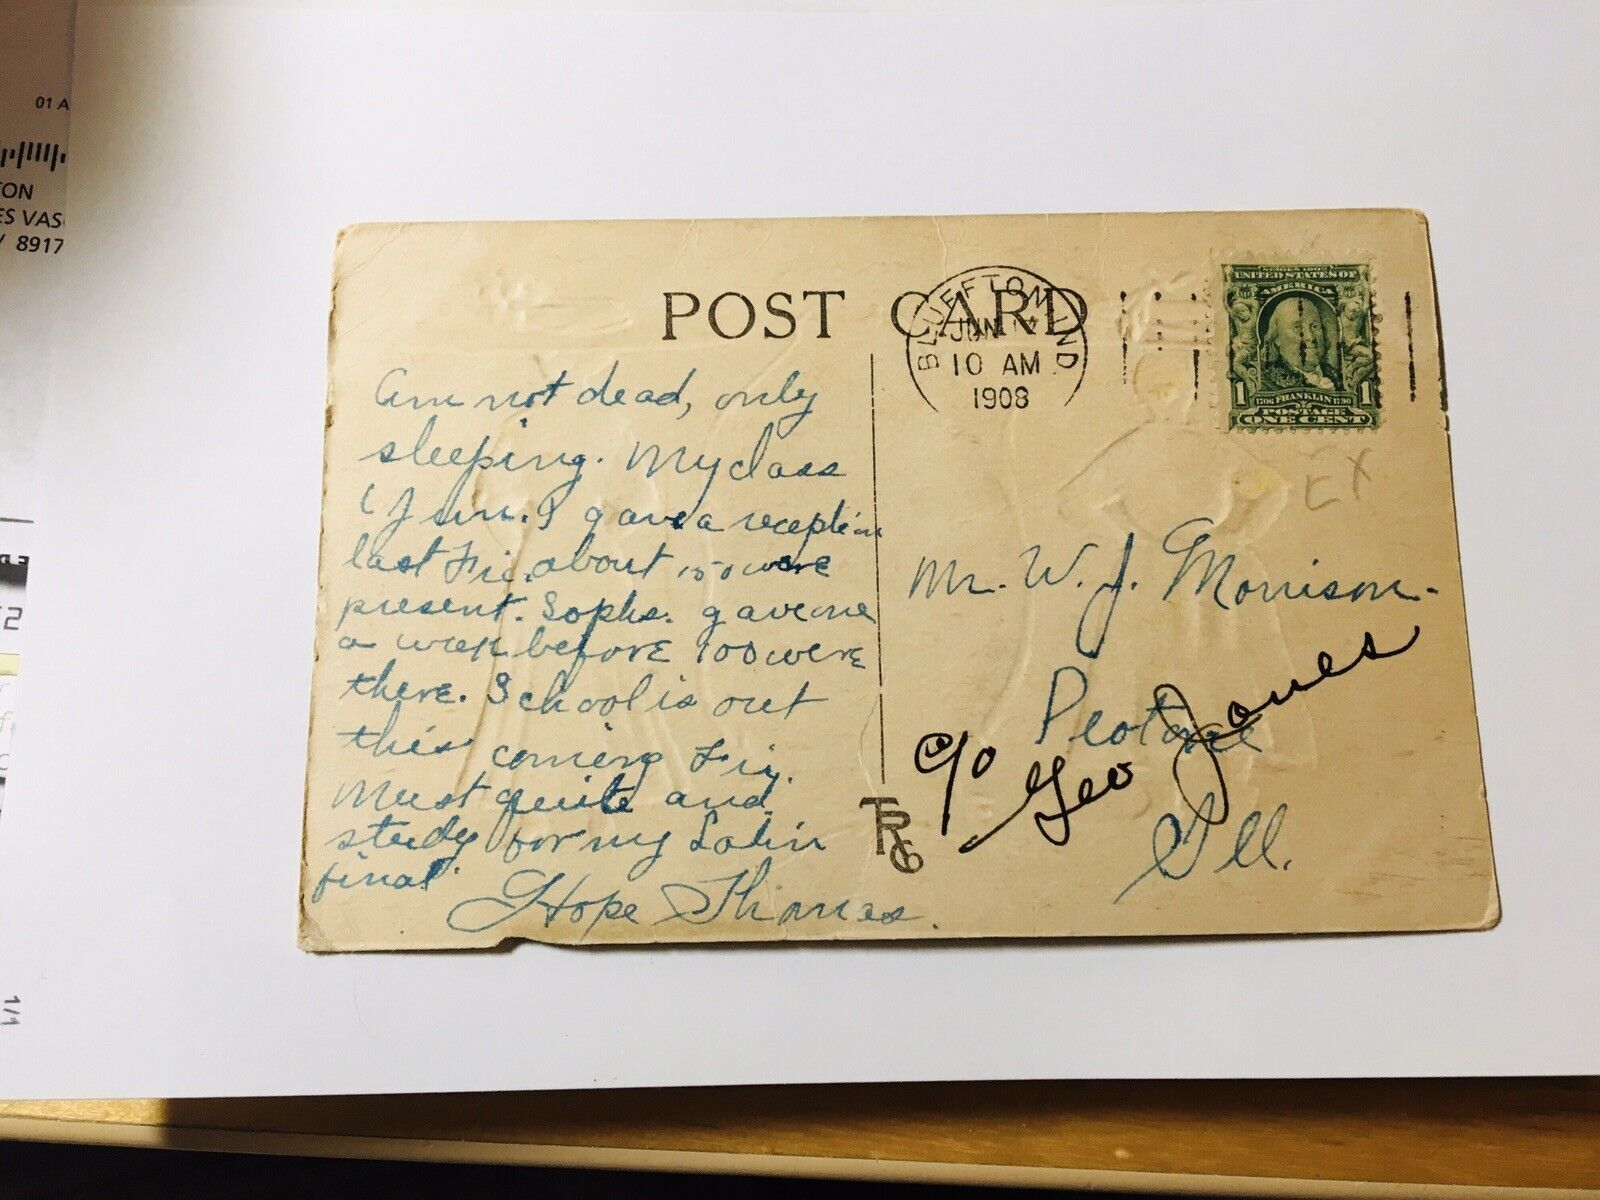 01 A
TON
ES VAS
V 8917
POST CARD
BLUFFTON IND
JUN 17
10 AM
1908
SERIES 1902
UNITED STATES OF
AMERICA
1 1706 FRANKLIN 1790 1
POSTAGE
ONE CENT
EX
Am not dead, only
sleeping. My class
(Jun.) gave a reception
last Fri, about 150 were
present. Sophs. gave one
a week before 100 were
there. School is out
this coming Fri.
Must quite and
study for my Latin
final.
Hope Thomas.
Mr. W. J. Morrison.
Peotone
c/o Geo Jones
Ill.
TRG
1/1